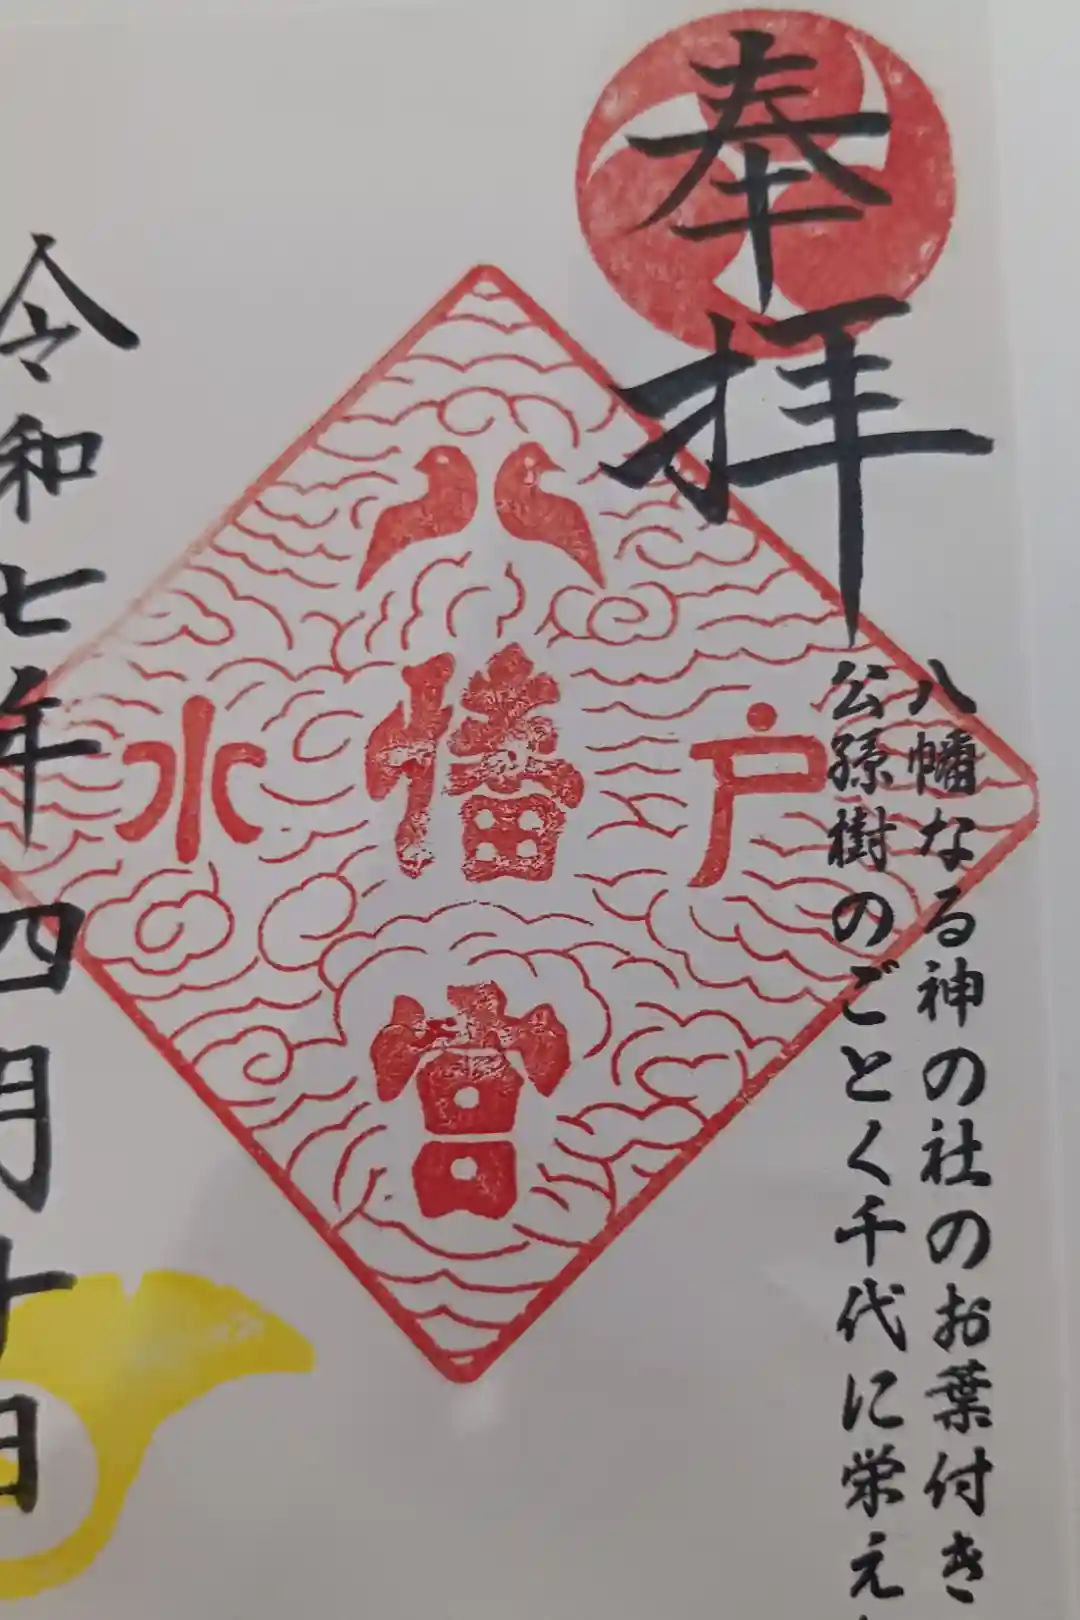 奉拝
八幡なる神の社のお葉付き
公孫樹のごとく千代に栄え
水戸
八幡宮
令和七年四月十日